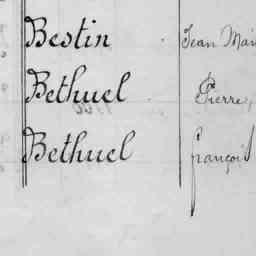 Bestin Jean Mai
Bethuel Pierre,
Bethuel François